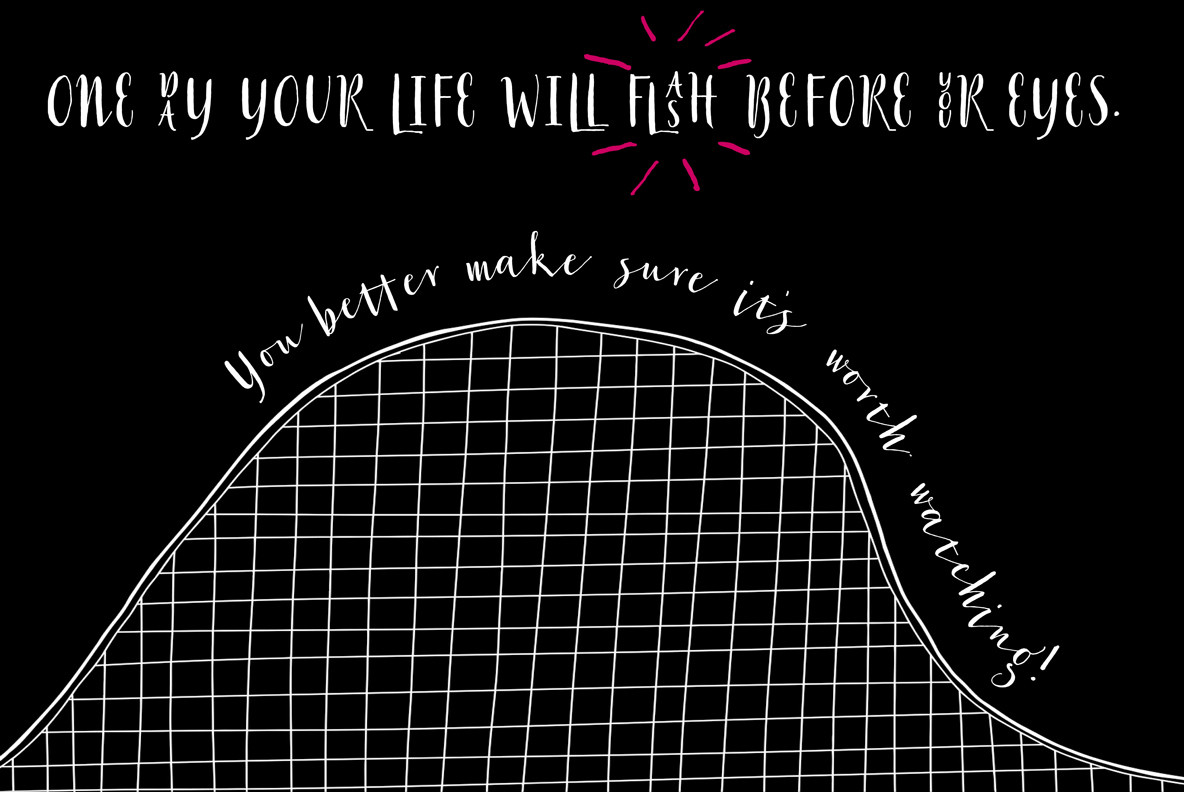 ONE DAY YOUR LIFE WILL FLASH BEFORE YOUR EYES.
You better make sure it's worth watching!